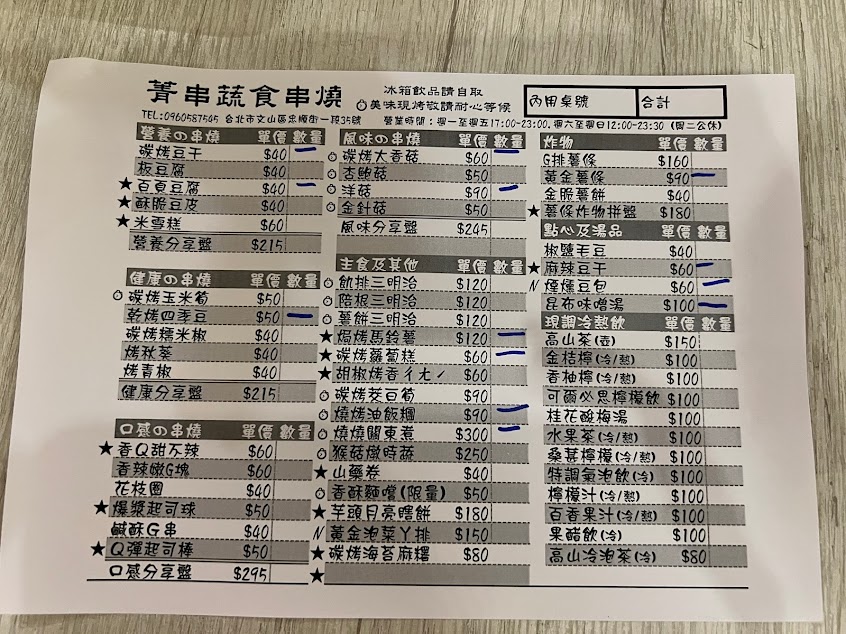 菁串蔬食串燒
冰箱飲品請自取
美味現烤敬請耐心等候
內用桌號
合計
TEL:0960587545 台北市文山區忠順街一段35號
營業時間：週一至週五17:00-23:00, 週六至週日12:00-23:30 (周二公休)
營養の串燒 單價 數量
碳烤豆干 $40 一
板豆腐 $40
★百頁豆腐 $40 一
★酥脆豆皮 $40
★米雪糕 $60
營養分享盤 $215
健康の串燒 單價 數量
碳烤玉米筍 $50
乾烤四季豆 $50 一
碳烤糯米椒 $40
烤秋葵 $40
烤青椒 $40
健康分享盤 $215
口感の串燒 單價 數量
★香Q甜不辣 $60
香辣嫩G塊 $60
花枝圈 $40
★爆漿起司球 $50
鹹酥G串 $40
★Q彈起司棒 $50
口感分享盤 $295
風味の串燒 單價 數量
碳烤大香菇 $60 一
杏鮑菇 $50
洋菇 $90 一
金針菇 $50
風味分享盤 $245
主食及其他 單價 數量
飢排三明治 $120
陪根三明治 $120
薯餅三明治 $120
★焗烤馬鈴薯 $120 一
★碳烤蘿蔔糕 $60 一
★胡椒烤香ㄔㄤˊ $60
碳烤茭白筍 $90
燒烤油飯糰 $90 一
燒燒關東煮 $300 一
猴菇燉時蔬 $250
★山藥卷 $40
香酥麵噹(限量) $50
★芋頭月亮瞎餅 $180
N 黃金泡菜ㄚ排 $150
★碳烤海苔麻糬 $80
★
炸物 單價 數量
G排薯條 $160
黃金薯條 $90 一
金脆薯餅 $40
★薯條炸物拼盤 $180
點心及湯品 單價 數量
椒鹽毛豆 $40
★麻辣豆干 $60 一
N 煙燻豆包 $60 一
昆布味噌湯 $100 一
現調冷熱飲 單價 數量
高山茶(壺) $150
金桔檸(冷/熱) $100
香柚檸(冷/熱) $100
可爾必思檸檬飲 $100
桂花酸梅湯 $100
水果茶(冷/熱) $100
桑葚檸檬(冷/熱) $100
特調氣泡飲(冷) $100
檸檬汁(冷/熱) $100
百香果汁(冷/熱) $100
果醋飲(冷) $100
高山冷泡茶(冷) $80